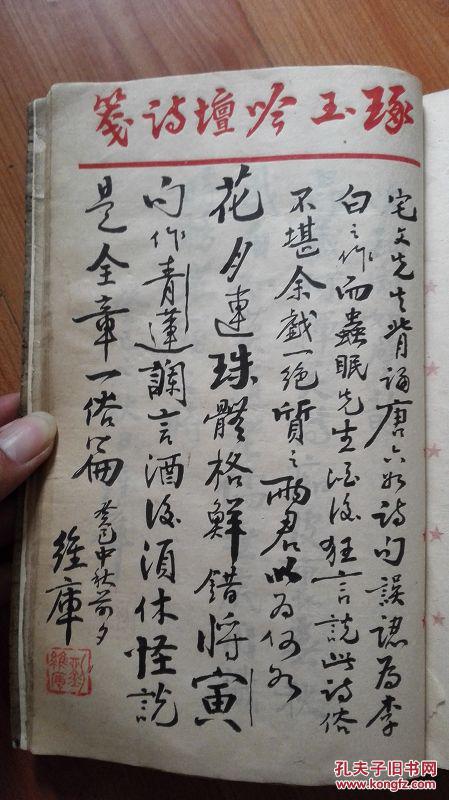 琢玉吟壇诗箋
宅文先生背诵唐六如诗句誤認為李
白之作而蟲眠先生酒後狂言說此詩俗
不堪余戲一絶質之两君以为何如
花月連珠體格鮮錯將寅
句作青蓮讕言酒後須休怪說
是全章一俗篇
癸巳中秋前夕
維庫
孔夫子旧书网
KONGFZ.COM